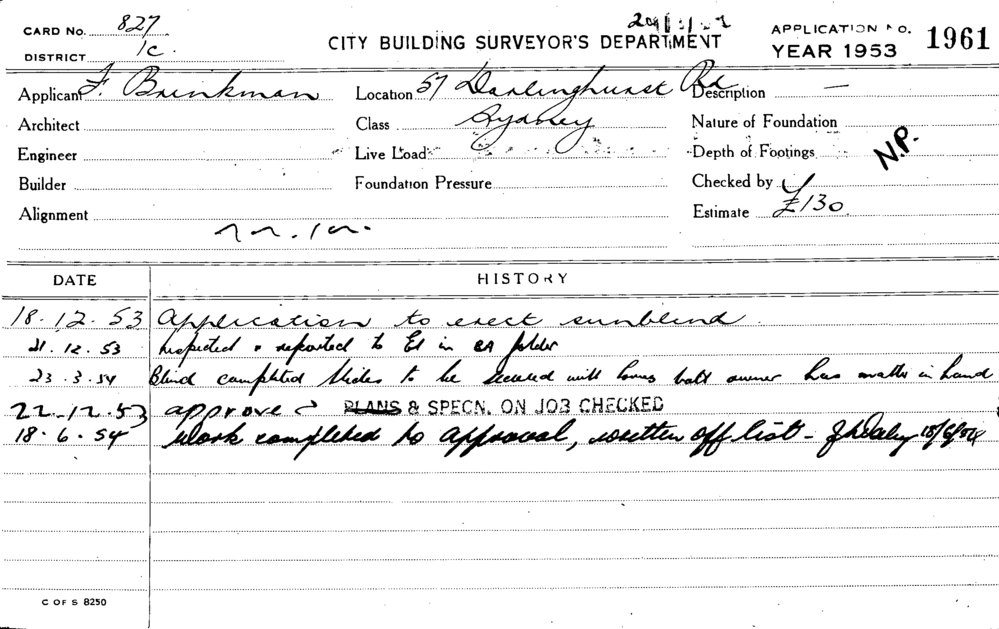 CARD No. 827
DISTRICT 1c.
CITY BUILDING SURVEYOR'S DEPARTMENT
APPLICATION No. 1961
YEAR 1953
Applicant F. Brinkman
Location 57 Darlinghurst Rd
Description —
Architect
Class Sydney
Nature of Foundation
Engineer
Live Load
Depth of Footings
N.P.
Builder
Foundation Pressure
Checked by
Alignment
Estimate £130
DATE HISTORY
18.12.53 Application to erect sunblind.
21.12.53 Inspected & reported to in BA folder
23.3.54 Blind completed to be secured with bolt owner has matter in hand
22-12-53 approve PLANS & SPECN. ON JOB CHECKED
18.6.54 Work completed to approval, written off list - 18/6/54
C OF S 8250